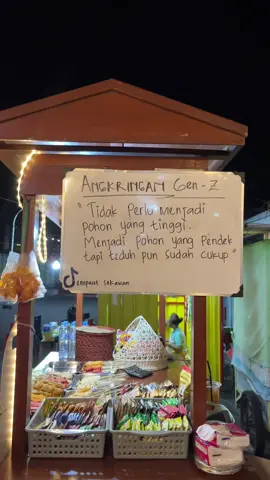 ANGKRINGAM Gen-Z
"Tidak Perlu Menjadi
pohon yang tinggi.
Menjadi pohon yang Pendek
tapi teduh pun sudah cukup"